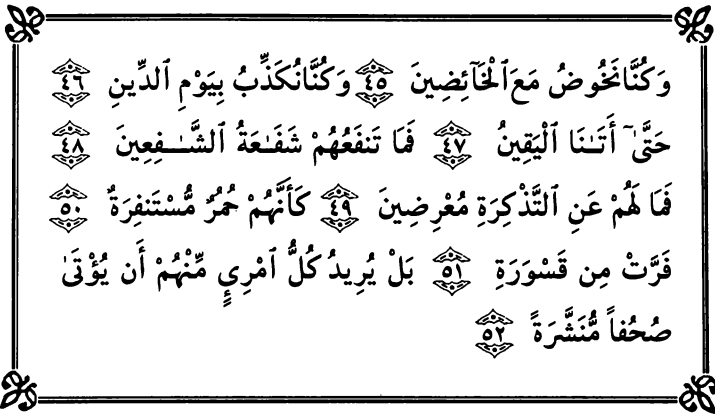 وَكُنَّا نَخُوضُ مَعَ ٱلْخَآئِضِينَ ٤٥ وَكُنَّا نُكَذِّبُ بِيَوْمِ ٱلدِّينِ ٤٦
حَتَّىٰٓ أَتَىٰنَا ٱلْيَقِينُ ٤٧ فَمَا تَنفَعُهُمْ شَفَٰعَةُ ٱلشَّٰفِعِينَ ٤٨
فَمَا لَهُمْ عَنِ ٱلتَّذْكِرَةِ مُعْرِضِينَ ٤٩ كَأَنَّهُمْ حُمُرٌ مُّسْتَنفِرَةٌ ٥٠
فَرَّتْ مِن قَسْوَرَةٍ ٥١ بَلْ يُرِيدُ كُلُّ ٱمْرِئٍ مِّنْهُمْ أَن يُؤْتَىٰ
صُحُفاً مُّنَشَّرَةً ٥٢